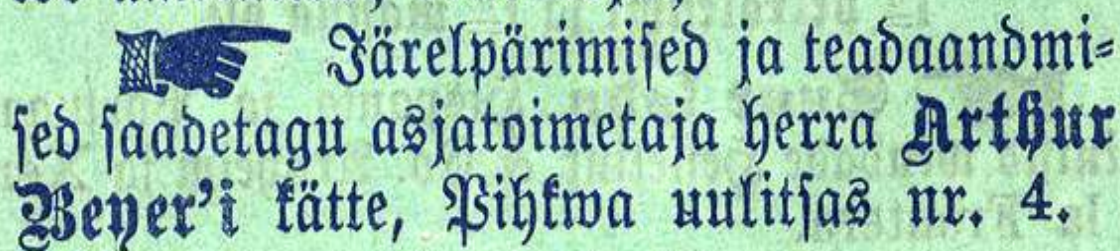 ☞ Järelpärimised ja teadaandmi-
sed saadetagu asjatoimetaja herra Arthur
Beyer'i kätte, Pihkwa uulitsas nr. 4.